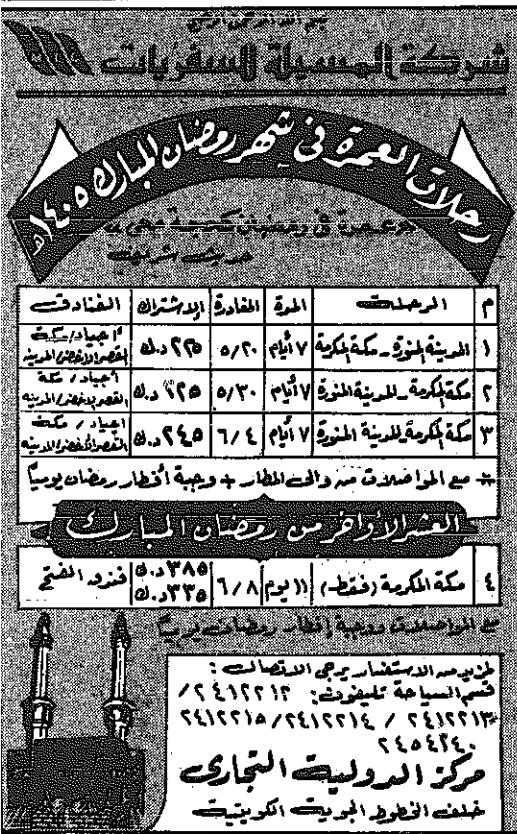 بسم الله الرحمن الرحيم
شركة المسيلة للسفريات
رحلات العمرة في شهر رمضان المبارك ١٤٠٥هـ
عمرة في رمضان كحجة معي
حديث شريف
م الرحلات المدة المغادرة الاشتراك الفنادق
١ المدينة المنورة - مكة المكرمة ٧ أيام ٥/٢٠ ٢٢٥ د.ك أجياد/مكة القصر الأخضر/المدينة
٢ مكة المكرمة - المدينة المنورة ٧ أيام ٥/٣٠ ٢٢٥ د.ك أجياد/مكة القصر الأخضر/المدينة
٣ مكة المكرمة والمدينة المنورة ٧ أيام ٦/٤ ٢٤٥ د.ك أجياد/مكة القصر الأخضر/المدينة
+ مع المواصلات من والى المطار + وجبة أفطار رمضان يومياً
العشر الأواخر من رمضان المبارك
٤ مكة المكرمة (فقط) ١١ يوم ٦/٨ ٣٨٥ د.ك ٣٣٥ د.ك فندق الفتح
مع المواصلات ووجبة إفطار رمضان يومياً
لمزيد من الاستفسار يرجى الاتصال :
قسم السياحة تليفون: ٢٤١٢٢١٢/
٢٤١٢٢١٣ / ٢٤١٢٢١٤/ ٢٤١٢٢١٥
٢٤٥٤٢٤٠
مركز الدولية التجاري
خلف الخطوط الجوية الكويتية